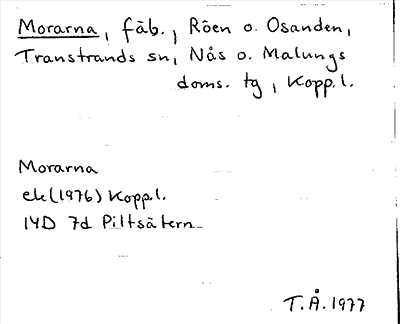 Morarna, fäb., Röen o. Osanden,
Transtrands sn, Nås o. Malungs
doms. tg, Kopp. l.
Morarna
ek (1976) Kopp. l.
14D 7d Piltsätern
T.Å. 1977